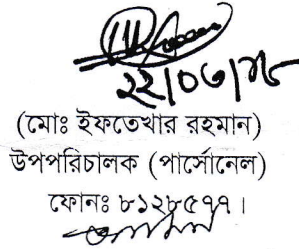 ২২/০৩/১৮
(মোঃ ইফতেখার রহমান)
উপপরিচালক (পার্সোনেল)
ফোনঃ ৮১২৮৫৭৭।